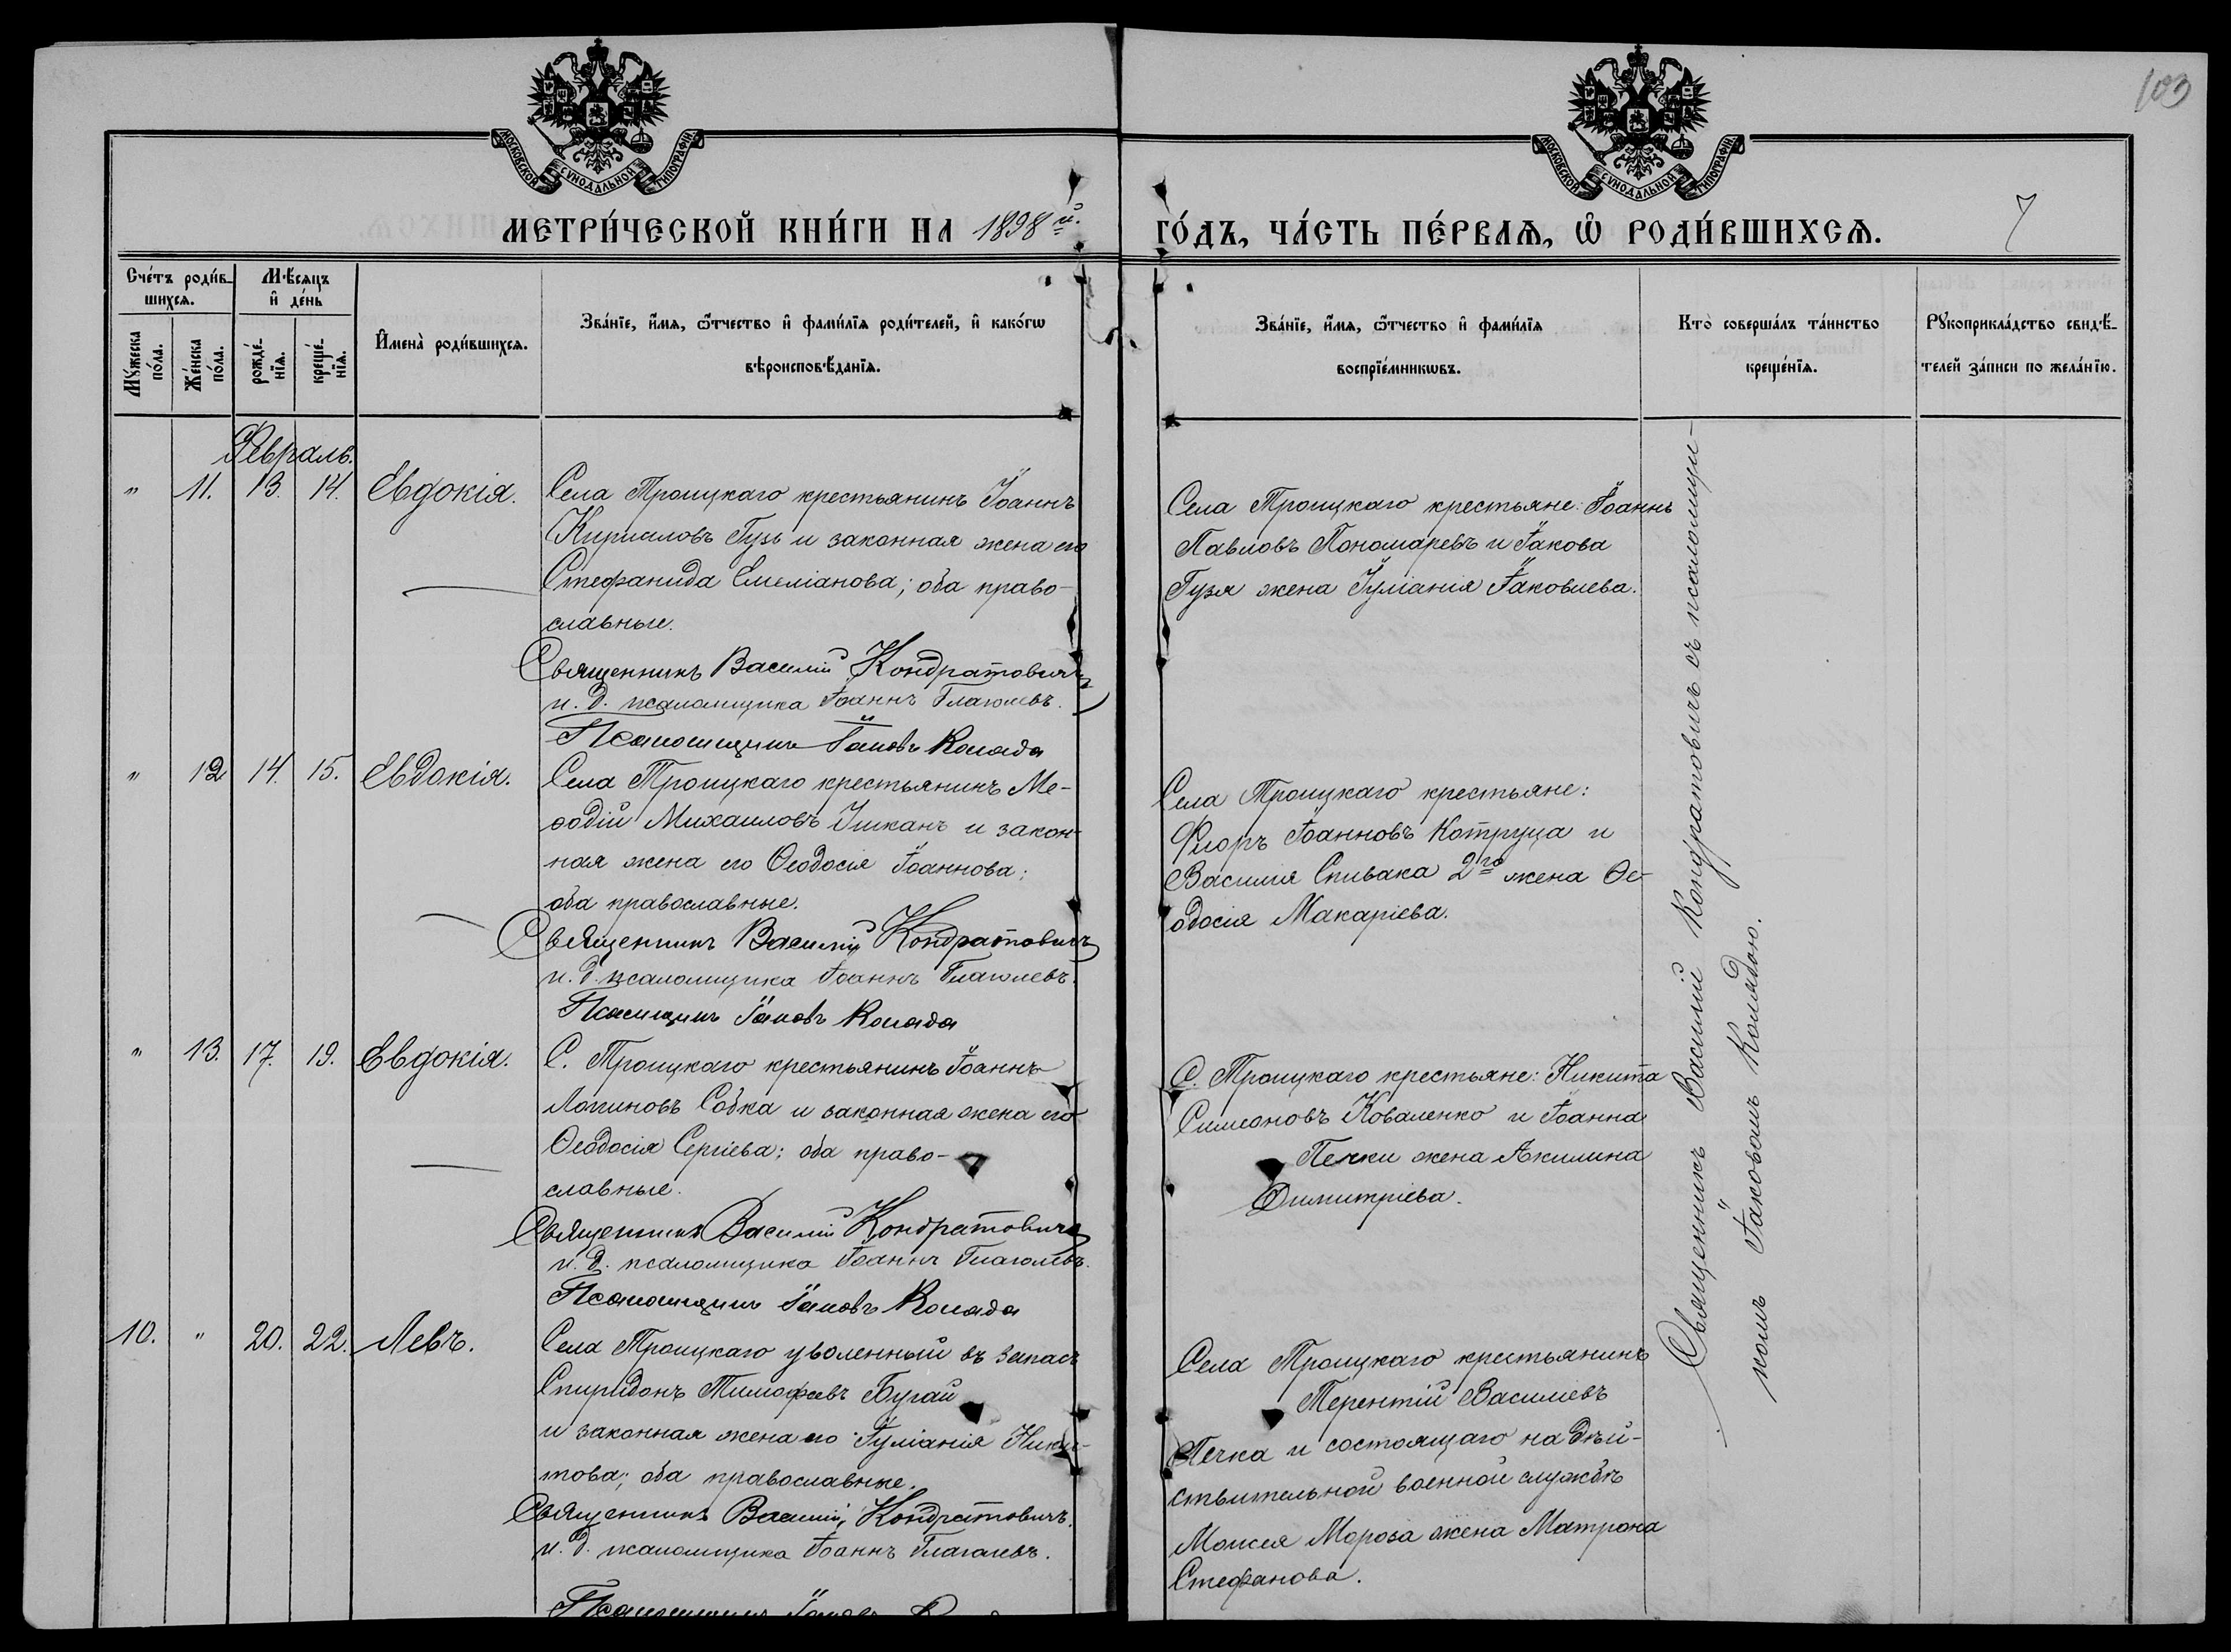 103
МОСКОВСКОЙ СѴНОДАЛЬНОЙ ТИПОГРАФІИ
МОСКОВСКОЙ СѴНОДАЛЬНОЙ ТИПОГРАФІИ
МЕТРИ́ЧЕСКОЙ КНИ́ГИ НА 1898й.
ГО́ДЪ, ЧА́СТЬ ПЕ́РВАѦ, Ѽ РОДИ́ВШИХСѦ.
7
Сче́тъ роди́в-
шихсѧ.
Мѣ́сѧцъ
и҆ де́нь
Мꙋ́жеска по́ла.
Же́нска по́ла.
рожде́-
нїѧ.
креще́-
нїѧ.
И҆мена̀ роди́вшихсѧ.
Зва́нїе, и҆́мѧ, ѻ҆́тчество и҆ фами́лїѧ роди́телей, и҆ како́гѡ
вѣроисповѣ́данїѧ.
Зва́нїе, и҆́мѧ, ѻ҆́тчество и҆ фами́лїѧ
воспрїе́мникѡвъ.
Кто̀ соверша́лъ та́инство
креще́нїѧ.
Рꙋкоприкла́дство свидѣ́-
телей за́писи по жела́нїю.
Февраль.
" 11. 13. 14. Евдокія.
Села Троицкаго крестьянинъ Іоаннъ
Кирилловъ Гузь и законная жена его
Стефанида Емеліанова; оба право-
славные.
Священникъ Василій Кондратовичъ
и. д. псаломщика Іоаннъ Глаголевъ.
Псаломщикъ Іаковъ Коляда
Села Троицкаго крестьяне: Іоаннъ
Павловъ Пономаревъ и Іакова
Гузя жена Іуліанія Іаковлева.
" 12 14. 15. Евдокія.
Села Троицкаго крестьянинъ Ме-
ѳодій Михаиловъ Ишканъ и закон-
ная жена его Ѳеодосія Іоаннова;
оба православные.
Священникъ Василій Кондратовичъ
и. д. псаломщика Іоаннъ Глаголевъ.
Псаломщикъ Іаковъ Коляда
Села Троицкаго крестьяне:
Флоръ Іоанновъ Котруца и
Василія Спивака 2го жена Ѳе-
одосія Макаріева.
" 13. 17. 19. Евдокія.
С. Троицкаго крестьянинъ Іоаннъ
Логиновъ Собка и законная жена его
Ѳеодосія Сергіева; оба право-
славные.
Священникъ Василій Кондратовичъ
и. д. псаломщика Іоаннъ Глаголевъ.
Псаломщикъ Іаковъ Коляда
С. Троицкаго крестьяне: Никита
Симеоновъ Коваленко и Іоанна
Печки жена Акилина
Димитріева.
10. " 20. 22. Левъ.
Села Троицкаго уволенный въ запасъ
Спиридонъ Тимофѣевъ Бугай
и законная жена его Іуліанія Ники-
това; оба православные.
Священникъ Василій Кондратовичъ.
и. д. псаломщика Іоаннъ Глаголевъ.
Псаломщикъ Іаковъ
Села Троицкаго крестьянинъ
Терентій Василіевъ
Печка и состоящаго на дѣй-
ствительной военной службѣ
Моисея Мороза жена Матрона
Стефанова.
Священникъ Василій Кондратовичъ съ псаломщи-
комъ Іаковомъ Колядою.